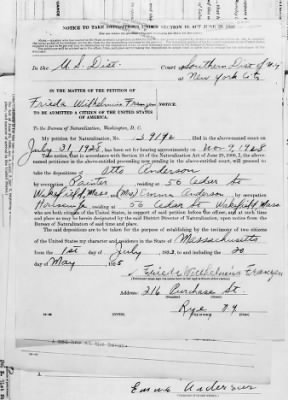 NOTICE TO TAKE DEPOSITIONS UNDER SECTION 10, ACT
In the U.S. Dist. Court Southern Dist of N.Y
at New York City
IN THE MATTER OF THE PETITION OF
Frieda Wilhelmina NOTICE.
TO BE ADMITTED A CITIZEN OF THE UNITED STATES
OF AMERICA.
To the Bureau of Naturalization, Washington, D. C.
My petition for Naturalization, No. filed in the above-named court on
July 31 1928, has been set for hearing approximately on Nov 9, 1928
Take notice, that in accordance with Section 10 of the Act of June 29, 1906, I, the above-
named petitioner in the above-entitled proceeding now pending in the above-entitled court, will proceed to
take the depositions of Otto Anderson
by occupation Painter residing at 56 Cedar St
Wakefield, Mass (Mrs) Anderson, by occupation
residing at 56 Cedar St Wakefield, Mass
who are both citizens of the United States, in support of said petition before the officer, and at such time
and place as may be herein designated by the said District Director of Naturalization, upon notice from the
Bureau of Naturalization of said time and place.
The said depositions are to be taken for the purpose of establishing by the testimony of two citizens
of the United States my character and residence in the State of Massachusetts
from the 1st day of July, and including the 20
day of May
Frieda Wilhelmina
Address: 216 Purchase St.
Rye NY
Anderson